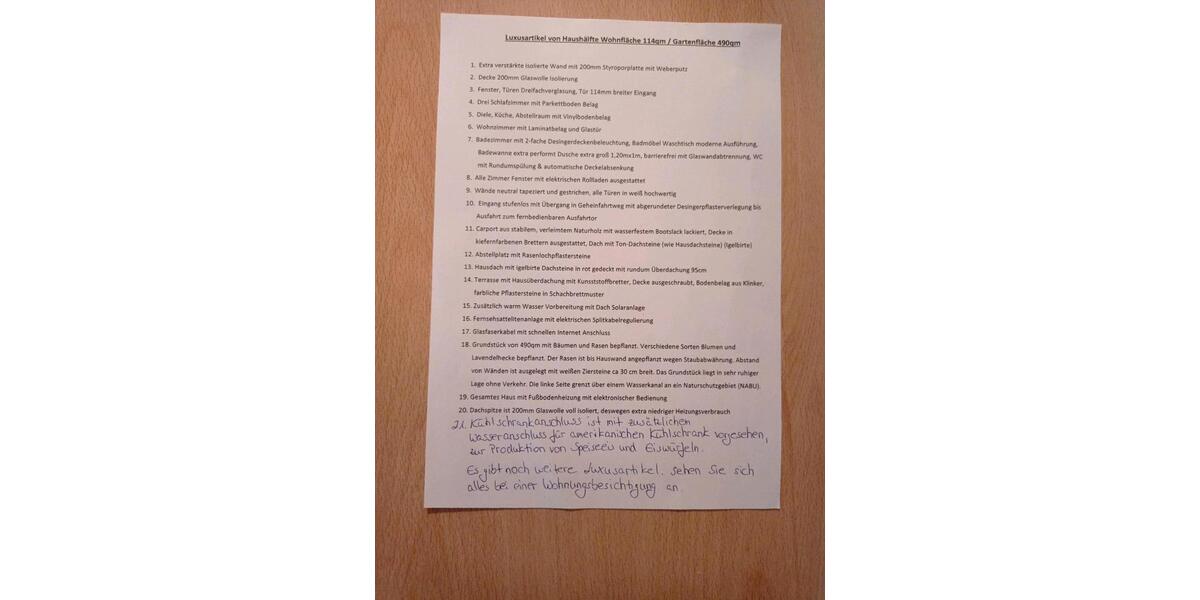 Luxusartikel von Haushälfte Wohnfläche 114qm / Gartenfläche 490qm
1. Extra verstärkte isolierte Wand mit 200mm Styroporplatte mit Weberputz
2. Decke 200mm Glaswolle Isolierung
3. Fenster, Türen Dreifachverglasung, Tür 114mm breiter Eingang
4. Drei Schlafzimmer mit Parkettboden Belag
5. Diele, Küche, Abstellraum mit Vinylbodenbelag
6. Wohnzimmer mit Laminatbelag und Glastür
7. Badezimmer mit 2-fache Desingerdeckenbeleuchtung, Badmöbel Waschtisch moderne Ausführung,
Badewanne extra performt Dusche extra groß 1,20mx1m, barrierefrei mit Glaswandabtrennung, WC
mit Rundumspülung & automatische Deckelabsenkung
8. Alle Zimmer Fenster mit elektrischen Rollladen ausgestattet
9. Wände neutral tapeziert und gestrichen, alle Türen in weiß hochwertig
10. Eingang stufenlos mit Übergang in Geheinfahrtweg mit abgerundeter Desingerpflasterverlegung bis
Ausfahrt zum fernbedienbaren Ausfahrtor
11. Carport aus stabilem, verleimtem Naturholz mit wasserfestem Bootslack lackiert, Decke in
kiefernfarbenen Brettern ausgestattet, Dach mit Ton-Dachsteine (wie Hausdachsteine) (Igelbirte)
12. Abstellplatz mit Rasenlochpflastersteine
13. Hausdach mit Igelbirte Dachsteine in rot gedeckt mit rundum Überdachung 95cm
14. Terrasse mit Hausüberdachung mit Kunsststoffbretter, Decke ausgeschraubt, Bodenbelag aus Klinker,
farbliche Pflastersteine in Schachbrettmuster
15. Zusätzlich warm Wasser Vorbereitung mit Dach Solaranlage
16. Fernsehsattelitenanlage mit elektrischen Splitkabelregulierung
17. Glasfaserkabel mit schnellen Internet Anschluss
18. Grundstück von 490qm mit Bäumen und Rasen bepflanzt. Verschiedene Sorten Blumen und
Lavendelhecke bepflanzt. Der Rasen ist bis Hauswand angepflanzt wegen Staubabwährung. Abstand
von Wänden ist ausgelegt mit weißen Ziersteine ca 30 cm breit. Das Grundstück liegt in sehr ruhiger
Lage ohne Verkehr. Die linke Seite grenzt über einem Wasserkanal an ein Naturschutzgebiet (NABU).
19. Gesamtes Haus mit Fußbodenheizung mit elektronischer Bedienung
20. Dachspitze ist 200mm Glaswolle voll isoliert, deswegen extra niedriger Heizungsverbrauch
21. Kühlschrankanschluss ist mit zusätzlichen
Wasseranschluss für amerikanischen Kühlschrank vorgesehen,
zur Produktion von Speiseeis und Eiswürfeln.
Es gibt noch weitere Luxusartikel. Sehen Sie sich
alles bei einer Wohnungsbesichtigung an.